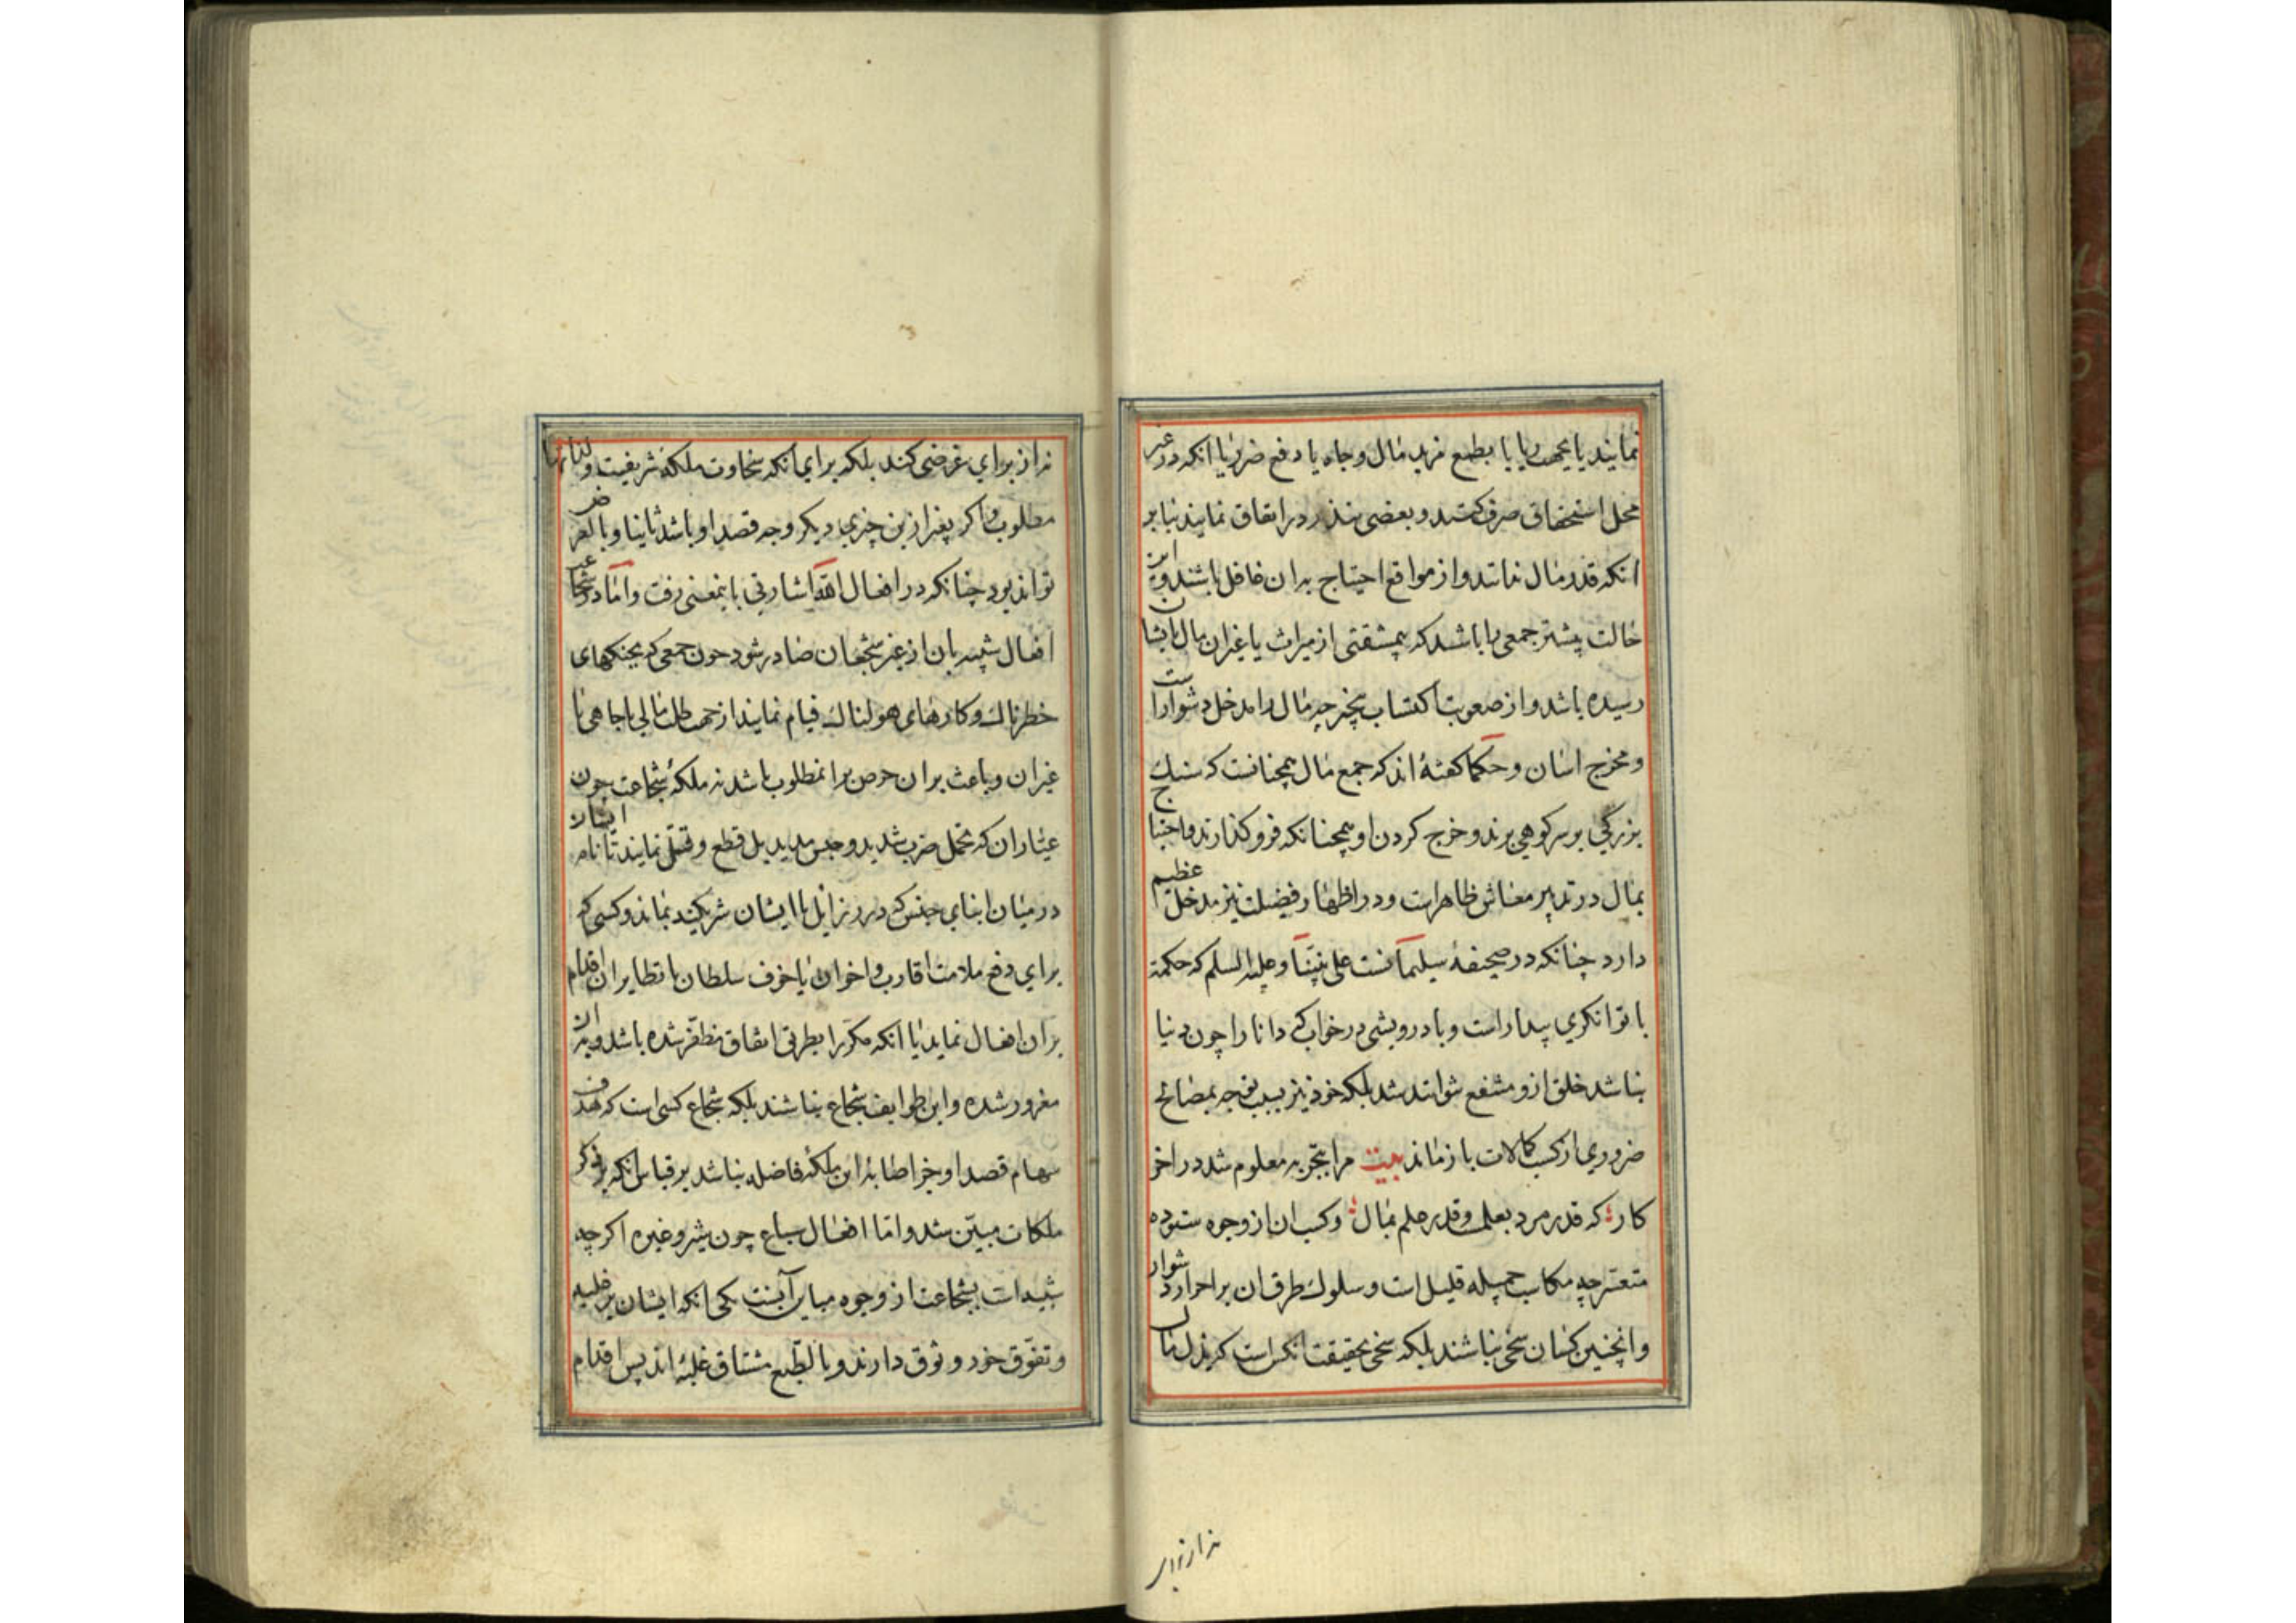 نمایند یا بجهت ریا یا بطمع مزید مال و جاه یا دفع ضرر یا انکه در غیر
محل استحقاق صرف کنند و بعضی تبذیر در انفاق نمایند بنابر
انکه قدر مال ندانند و از مواقع احتیاج بدان غافل باشند و این
حالت بیشتر جمعی را باشد که بیمشقتی از میراث یا غیر ان مال بایشان
رسیده باشد و از صعوبت اکتساب بیخبر چه مال را مدخل دشوار است
و مخرج اسان و حکما کفته‌اند که جمع مال همچنانست که سنک
بزرکی بر سر کوهی برند و خرج کردن او همچنانکه فرو کذارند و احتیاج
بمال در تدبیر معاش ظاهر است و در اظهار فضیلت نیز مدخل عظیم
دارد چنانکه در صحیفهٔ سلیمانست علی نبینا و علیه السلم که حکمة
با توانکری بیدار است و با درویشی در خواب که دانا را چون دنیا
نباشد خلق ازو منتفع نتوانند شد بلکه خود نیز بسبب توجه بمصالح
ضروری از کسب کمالات باز ماند بیت مرا بتجربه معلوم شد در اخر
کار که قدر مرد بعلم و قدر علم بمال و کسب ان از وجوه ستوده
متعسر چه مکاسب جمیله قلیل است و سلوک طرق ان بر احرار دشوار
و اینچنین کسان سخی نباشند بلکه سخی بحقیقت انکس است که بذل مال
نه از برای
نه از برای غرضی کند بلکه برای انکه سخاوت ملکهٔ شریفست و لذاتها
مطلوب و اکر بغیر ازین چیزی دیکر وجه قصد او باشد ثانیا و بالعرض
تواند بود چنانکه در افعال الله اشارتی باینمعنی رفت و اما در شجاعت
افعال شبیه بان از غیر شجعان صادر شود چون جمعی که بجنکهای
خطرناک و کارهای هولناک قیام نمایند از جهت طلب مالی یا جاهی یا
غیر ان و باعث بر ان حرص بر ان مطلوب باشد نه ملکهٔ شجاعت چون
عیاران که تحمل ضرب شدید و حبس مدید بل قطع و قتل نمایند تا نام ایشان
در میان ابنای جنس که در رذایل با ایشان شریکند بماند و کسی که
برای دفع ملامت اقارب و اخوان یا خوف سلطان یا نظایر ان اقدام
بر ان افعال نماید یا انکه مکررا بطریق اتفاق مظفر شده باشد و بر ان
مغرور شده و این طوایف شجاع نباشند بلکه شجاع کسی است که هدف
سهام قصد او جز اصابهٔ این ملکهٔ فاضله نباشد بر قیاس انکه در ذکر
ملکات مبین شد و اما افعال سباع چون شیر و غیره اکر چه
شبیه است بشجاعت از وجوه مباین آنست یکی انکه ایشان بر غلبه
و تفوق خود وثوق دارند و بالطبع مشتاق غلبه‌اند پس اقدام